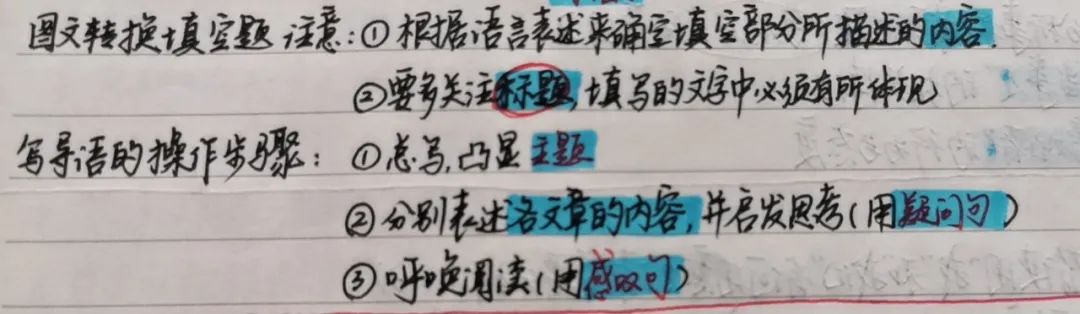 图文转换填空题 注意：①根据语言表述来确定填空部分所描述的内容.
②要多关注标题，填写的文字中必须有所体现
写导语的操作步骤：①总写，凸显主题
②分别表述各文章的内容，并启发思考（用疑问句）
③呼唤阅读（用感叹句）